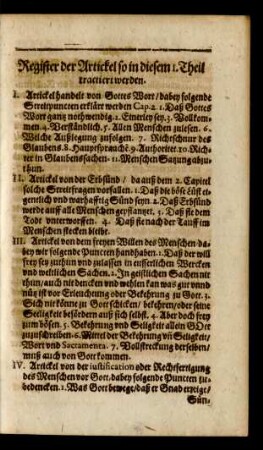 Register der Artickel so in diesem I. Theil
tractiert werden.
I. Artickel handelt von Gottes Wort / dabey folgende
Streitpuncten erklärt werden Cap. 2. 1. Daß Gottes
Wort gantz nothwendig. 2. Einerley sey. 3. Vollkom-
men. 4. Verständlich. 5. Allen Menschen zulesen. 6.
Welche Außlegung zufolgen. 7. Richtschnur des
Glaubens. 8. Hauptsprach? 9. Authoritet. 10. Rich-
ter in Glaubenssachen. 11. Menschen Satzung abzu-
thun.
II. Artickel von der Erbsünd / da auß dem 2. Capitel
solche Streitfragen vorfallen. 1. Daß die böse Lüst ei-
gentlich und warhafftig Sünd seyn. 2. Daß Erbsünd
werde auff alle Menschen gepflantzet. 3. Daß sie dem
Tode unterworffen. 4. Daß sie nach der Tauff im
Menschen stecken bleibe.
III. Artickel von dem freyen Willen des Menschen da-
bey wir folgende Puncten handhaben. 1. Daß der will
frey sey zuthun und zulassen in eusserlichen Wercken
und weltlichen Sachen. 2. In geistlichen Sachen nit
thun / auch nit dencken und wehlen kan was gut und
nütz ist vor Erleuchtung oder Bekehrung zu Gott. 3.
Sich nit könne zu Gott schicken / bekehren / oder seine
Seeligkeit befördern auß sich selbst. 4. Aber doch frey
zum bösen. 5. Bekehrung und Seligkeit allein GOtt
zuzuschreiben. 6. Mittel der Bekehrung uñ Seligkeit /
Wort und Sacramenta. 7. Vollstreckung derselben /
muß auch von Gott kommen.
IV. Artickel von der iustification oder Rechtfertigung
des Menschen vor Gott / dabey folgende Puncten zu-
bedencken. 1. Was Gott bewege / daß er Gnad erzeige /
Sün-